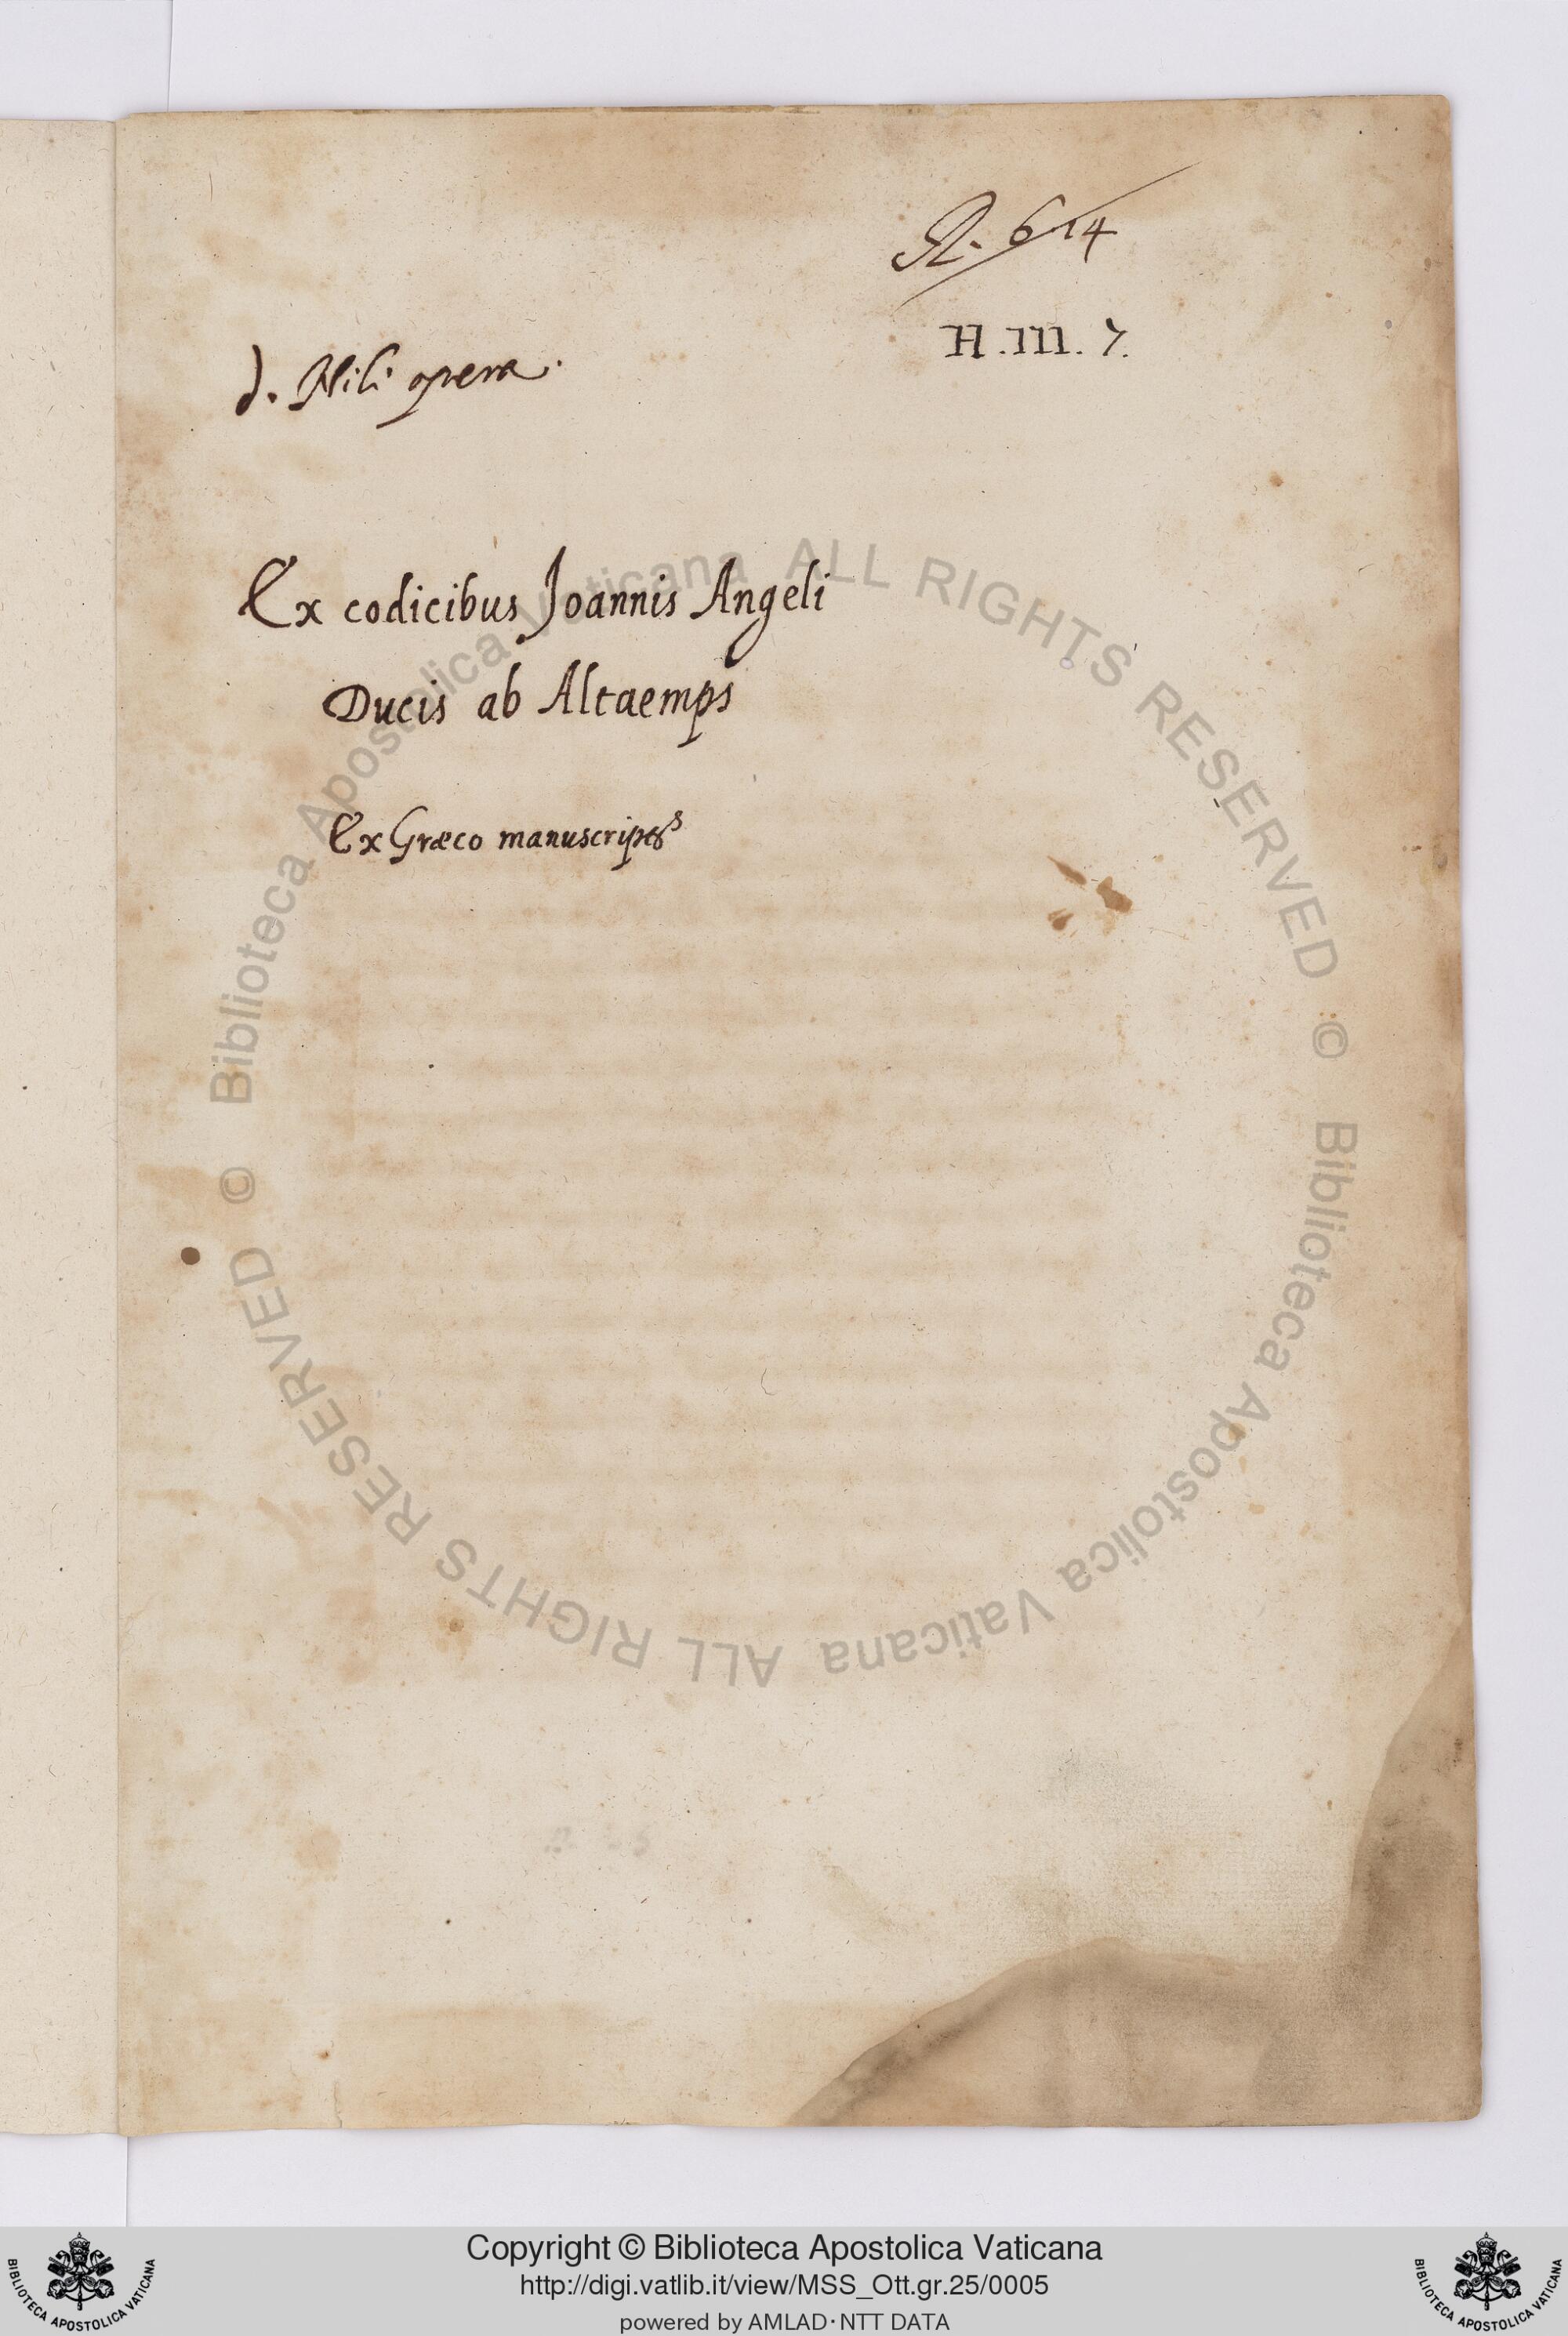 R. 614
H.III.7.
d. Nili opera.
Ex codicibus Joannis Angeli
Ducis ab Altaemps
Ex Græco manuscript
© Biblioteca Apostolica Vaticana ALL RIGHTS RESERVED
© Biblioteca Apostolica Vaticana ALL RIGHTS RESERVED
BIBLIOTECA APOSTOLICA VATICANA
Copyright © Biblioteca Apostolica Vaticana
http://digi.vatlib.it/view/MSS_Ott.gr.25/0005
powered by AMLAD·NTT DATA
BIBLIOTECA APOSTOLICA VATICANA